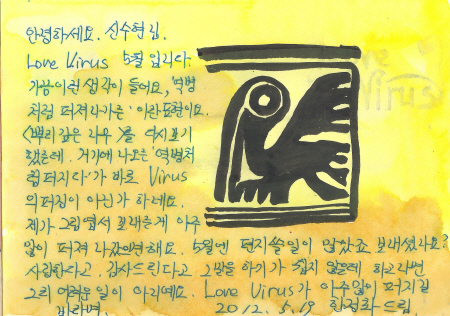 안녕하세요. 신수현님.
Love Virus 5월 입니다.
가끔이런 생각이 들어요, '역병
처럼 퍼져나가는' 이란표현이요.
<뿌리깊은 나무>를 다시보기
했는데. 거기에 나오는 '역병처
럼퍼지다'가 바로 Virus
의 퍼짐이 아닌가 하네요.
제가 그림엽서 보내는게 아주
많이 퍼져 나갔으면해요. 5월엔 편지쓸일이 많았죠 보내셨나요?
사랑한다고, 감사드린다고 그말을 하기가 쉽지 않은데 하고나면
그리 어려운 일이 아니예요. Love Virus가 아주많이 퍼지길
바라며. 2012. 5. 19 황정화드림.